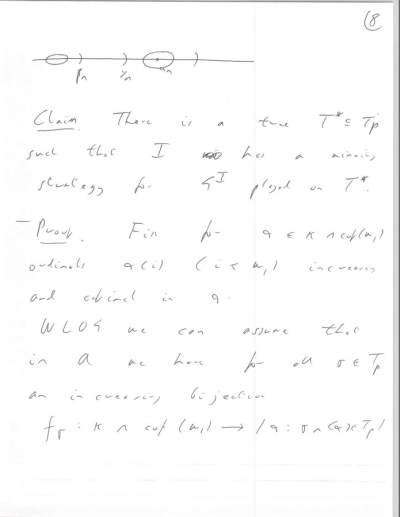 (8
βn γn αn
Claim. There is a tree T* ⊆ Tp
such that I has a winning
strategy for G^I played on T*.
Proof. Fix for α ∈ K ∩ cof(ω1)
ordinals α(i) (i < ω1) increasing
and cofinal in α.
WLOG we can assume that
in a we have for all σ ∈ Tp
an increasing bijection
fσ : K ∩ cof(ω1) → {α : σ∩(α) ∈ Tp}